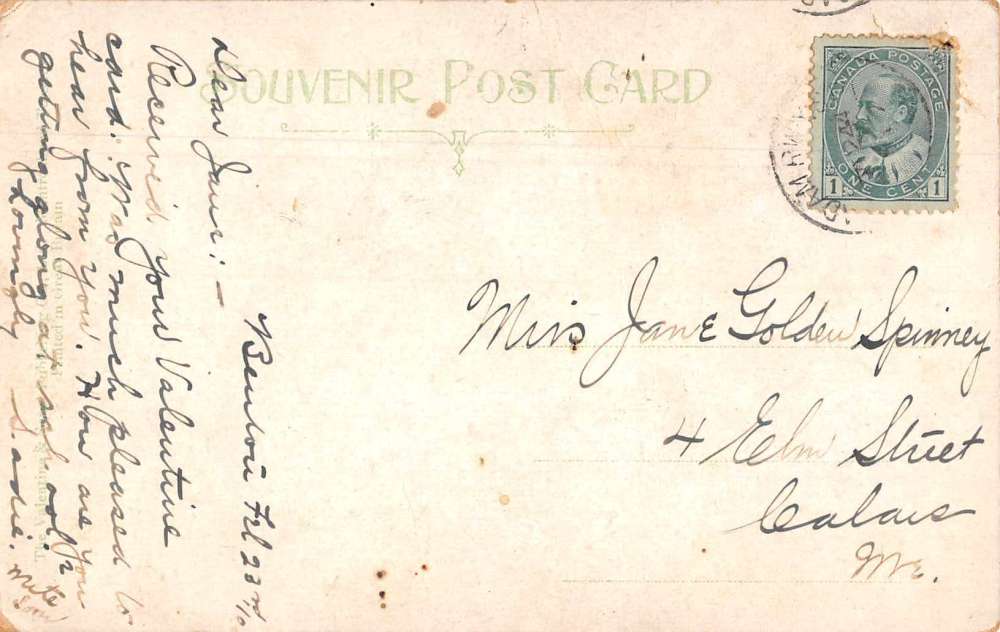 SOUVENIR POST CARD
CANADA POSTAGE
1 ONE CENT 1
ADAM
Benton Feb 23rd/10
Dear Jane:-
Received your Valentine
card. Was much pleased to
hear from you. How are you
getting along at school?
Lovingly Sadie.
Write
soon
Miss Jane Golden Spinney
4 Elm Street
Calais
Me.